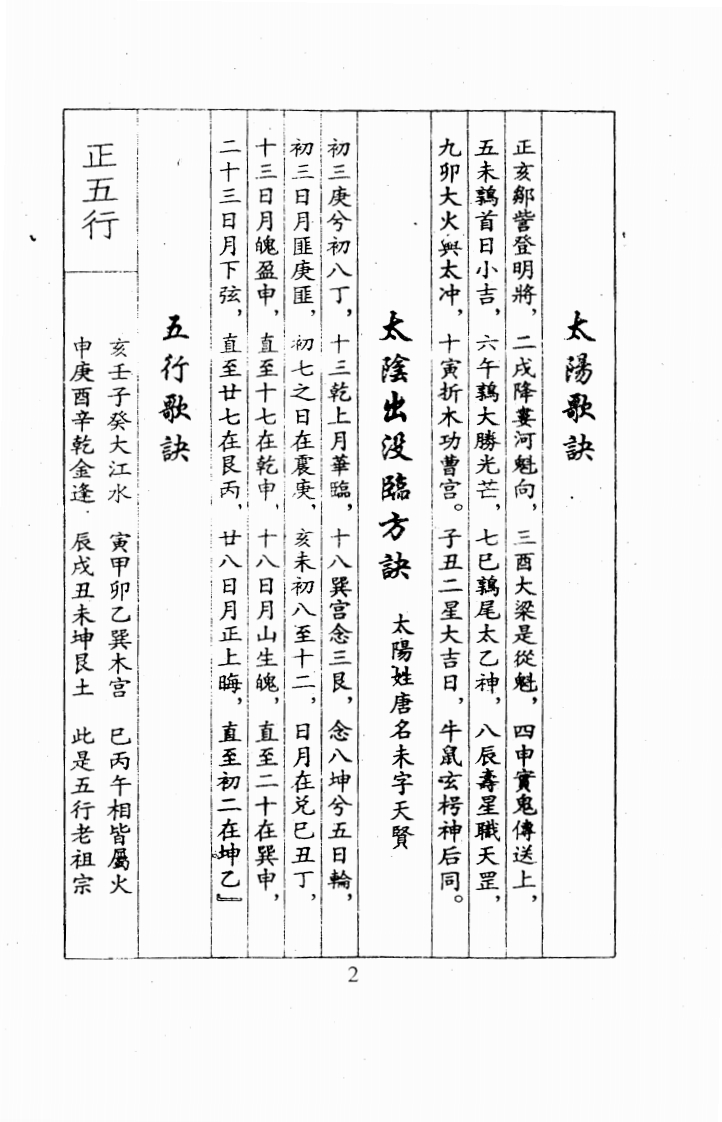 太陽歌訣
正亥鄒訾登明將，二戌降婁河魁向，三酉大梁是從魁，四申實鬼傳送上，
五未鶉首日小吉，六午鶉大勝光芒，七巳鶉尾太乙神，八辰壽星職天罡，
九卯大火與太冲，十寅折木功曹宫。子丑二星大吉日，牛鼠玄枵神后同。
太陰出没臨方訣 太陽姓唐名未字天賢
初三庚兮初八丁，十三乾上月華臨，十八巽宫念三艮，念八坤兮五日輪，
初三日月匪庚匪，初七之日在震庚，亥未初八至十二，日月在兑巳丑丁，
十三日月魄盈申，直至十七在乾申，十八日月山生魄，直至二十在巽申，
二十三日月下弦，直至廿七在艮丙，廿八日月正上晦，直至初二在坤乙』
五行歌訣
正五行
亥壬子癸大江水 寅甲卯乙巽木宫 巳丙午相皆屬火
申庚酉辛乾金逢 辰戌丑未坤艮土 此是五行老祖宗
2